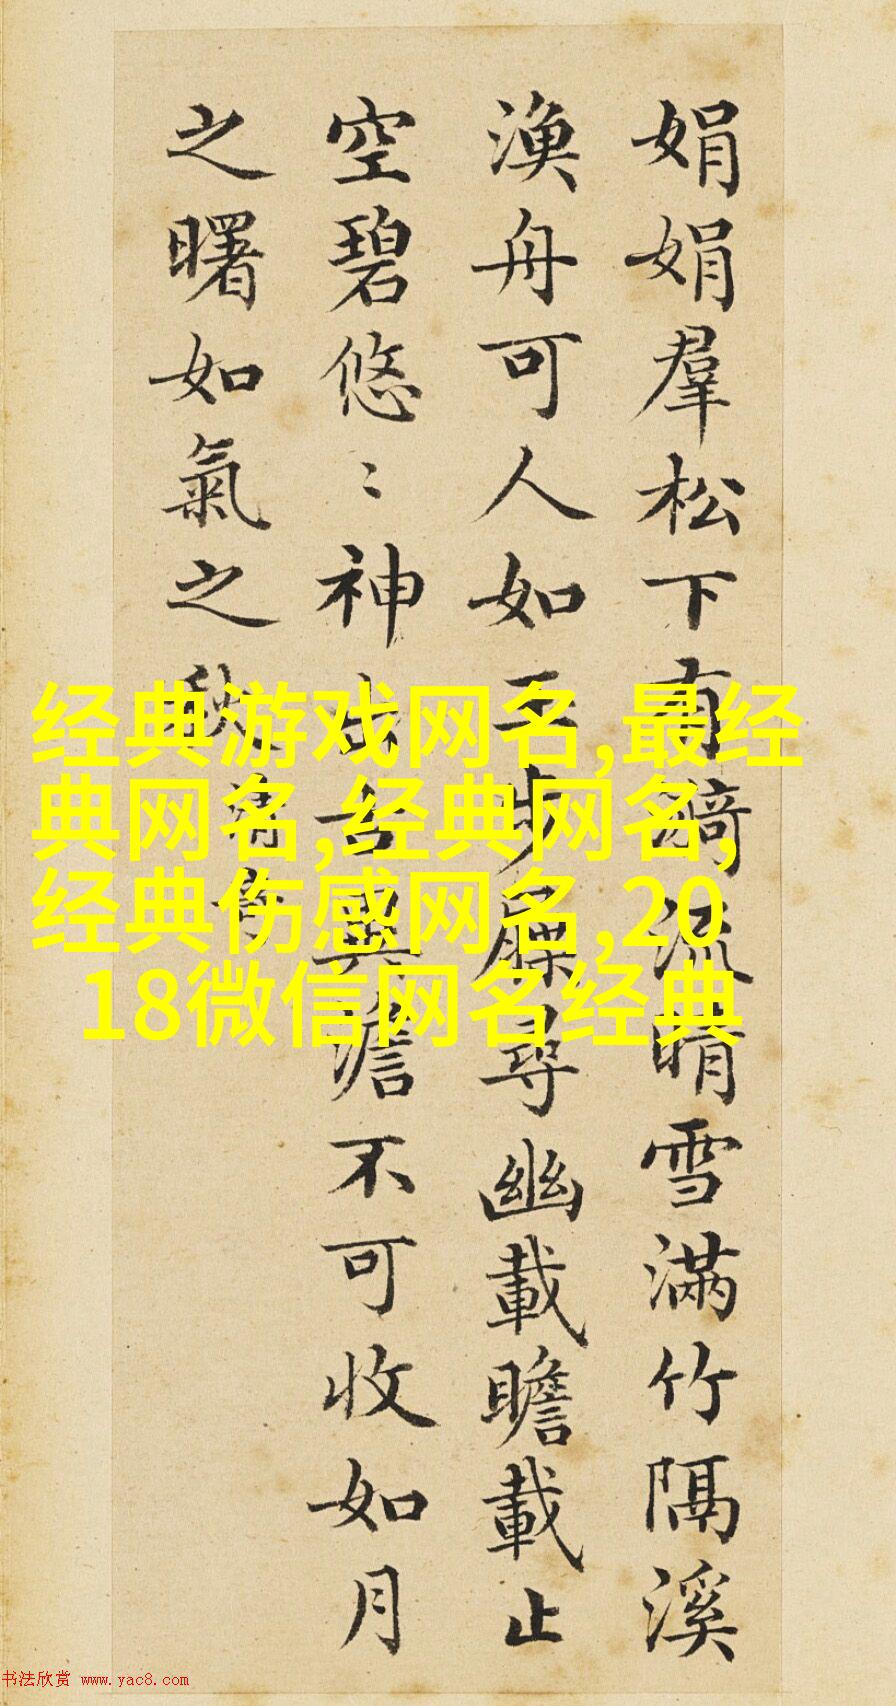 娟娟羣松下有漪流晴雪滿竹隔溪
漁舟可人如玉步屧尋幽載瞻載止
空碧悠〻神出古異澹不可收如月
之曙如氣之秋
经典游戏网名,最经
典网名,经典网名,
经典伤感网名,20
18微信网名经典
书法欣赏 www.yac8.com